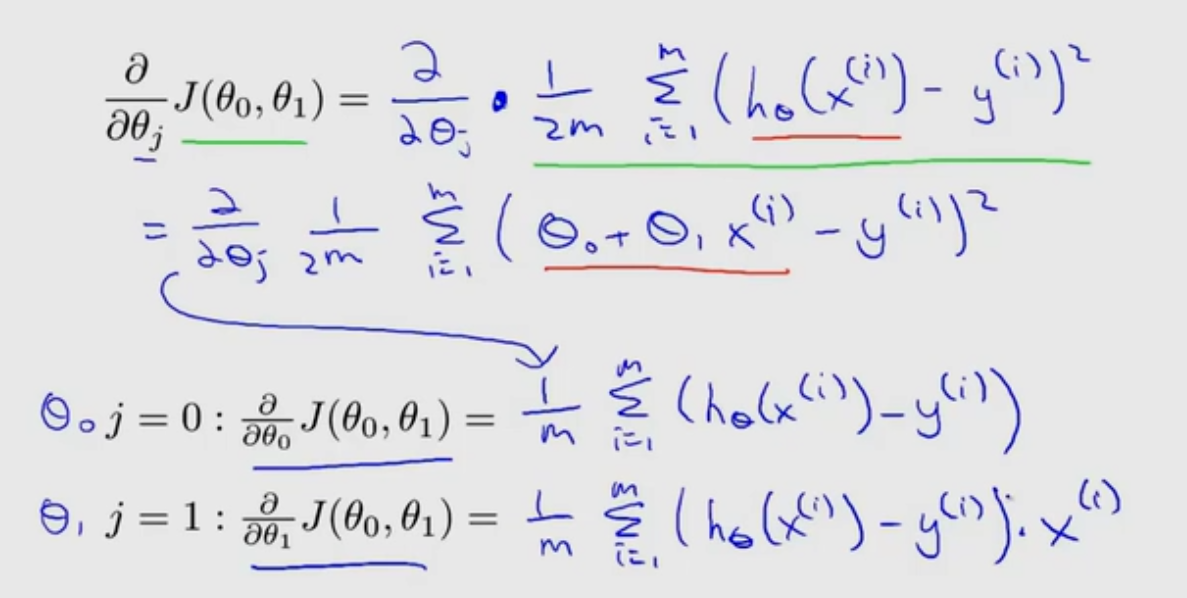 ∂/∂θⱼ J(θ₀, θ₁) = ∂/∂θⱼ · 1/2m ∑ᵢ₌₁ᵐ (hθ(x⁽ⁱ⁾) - y⁽ⁱ⁾)²
= ∂/∂θⱼ 1/2m ∑ᵢ₌₁ᵐ (θ₀ + θ₁ x⁽ⁱ⁾ - y⁽ⁱ⁾)²
θ₀ j = 0 : ∂/∂θ₀ J(θ₀, θ₁) = 1/m ∑ᵢ₌₁ᵐ (hθ(x⁽ⁱ⁾) - y⁽ⁱ⁾)
θ₁ j = 1 : ∂/∂θ₁ J(θ₀, θ₁) = 1/m ∑ᵢ₌₁ᵐ (hθ(x⁽ⁱ⁾) - y⁽ⁱ⁾) · x⁽ⁱ⁾